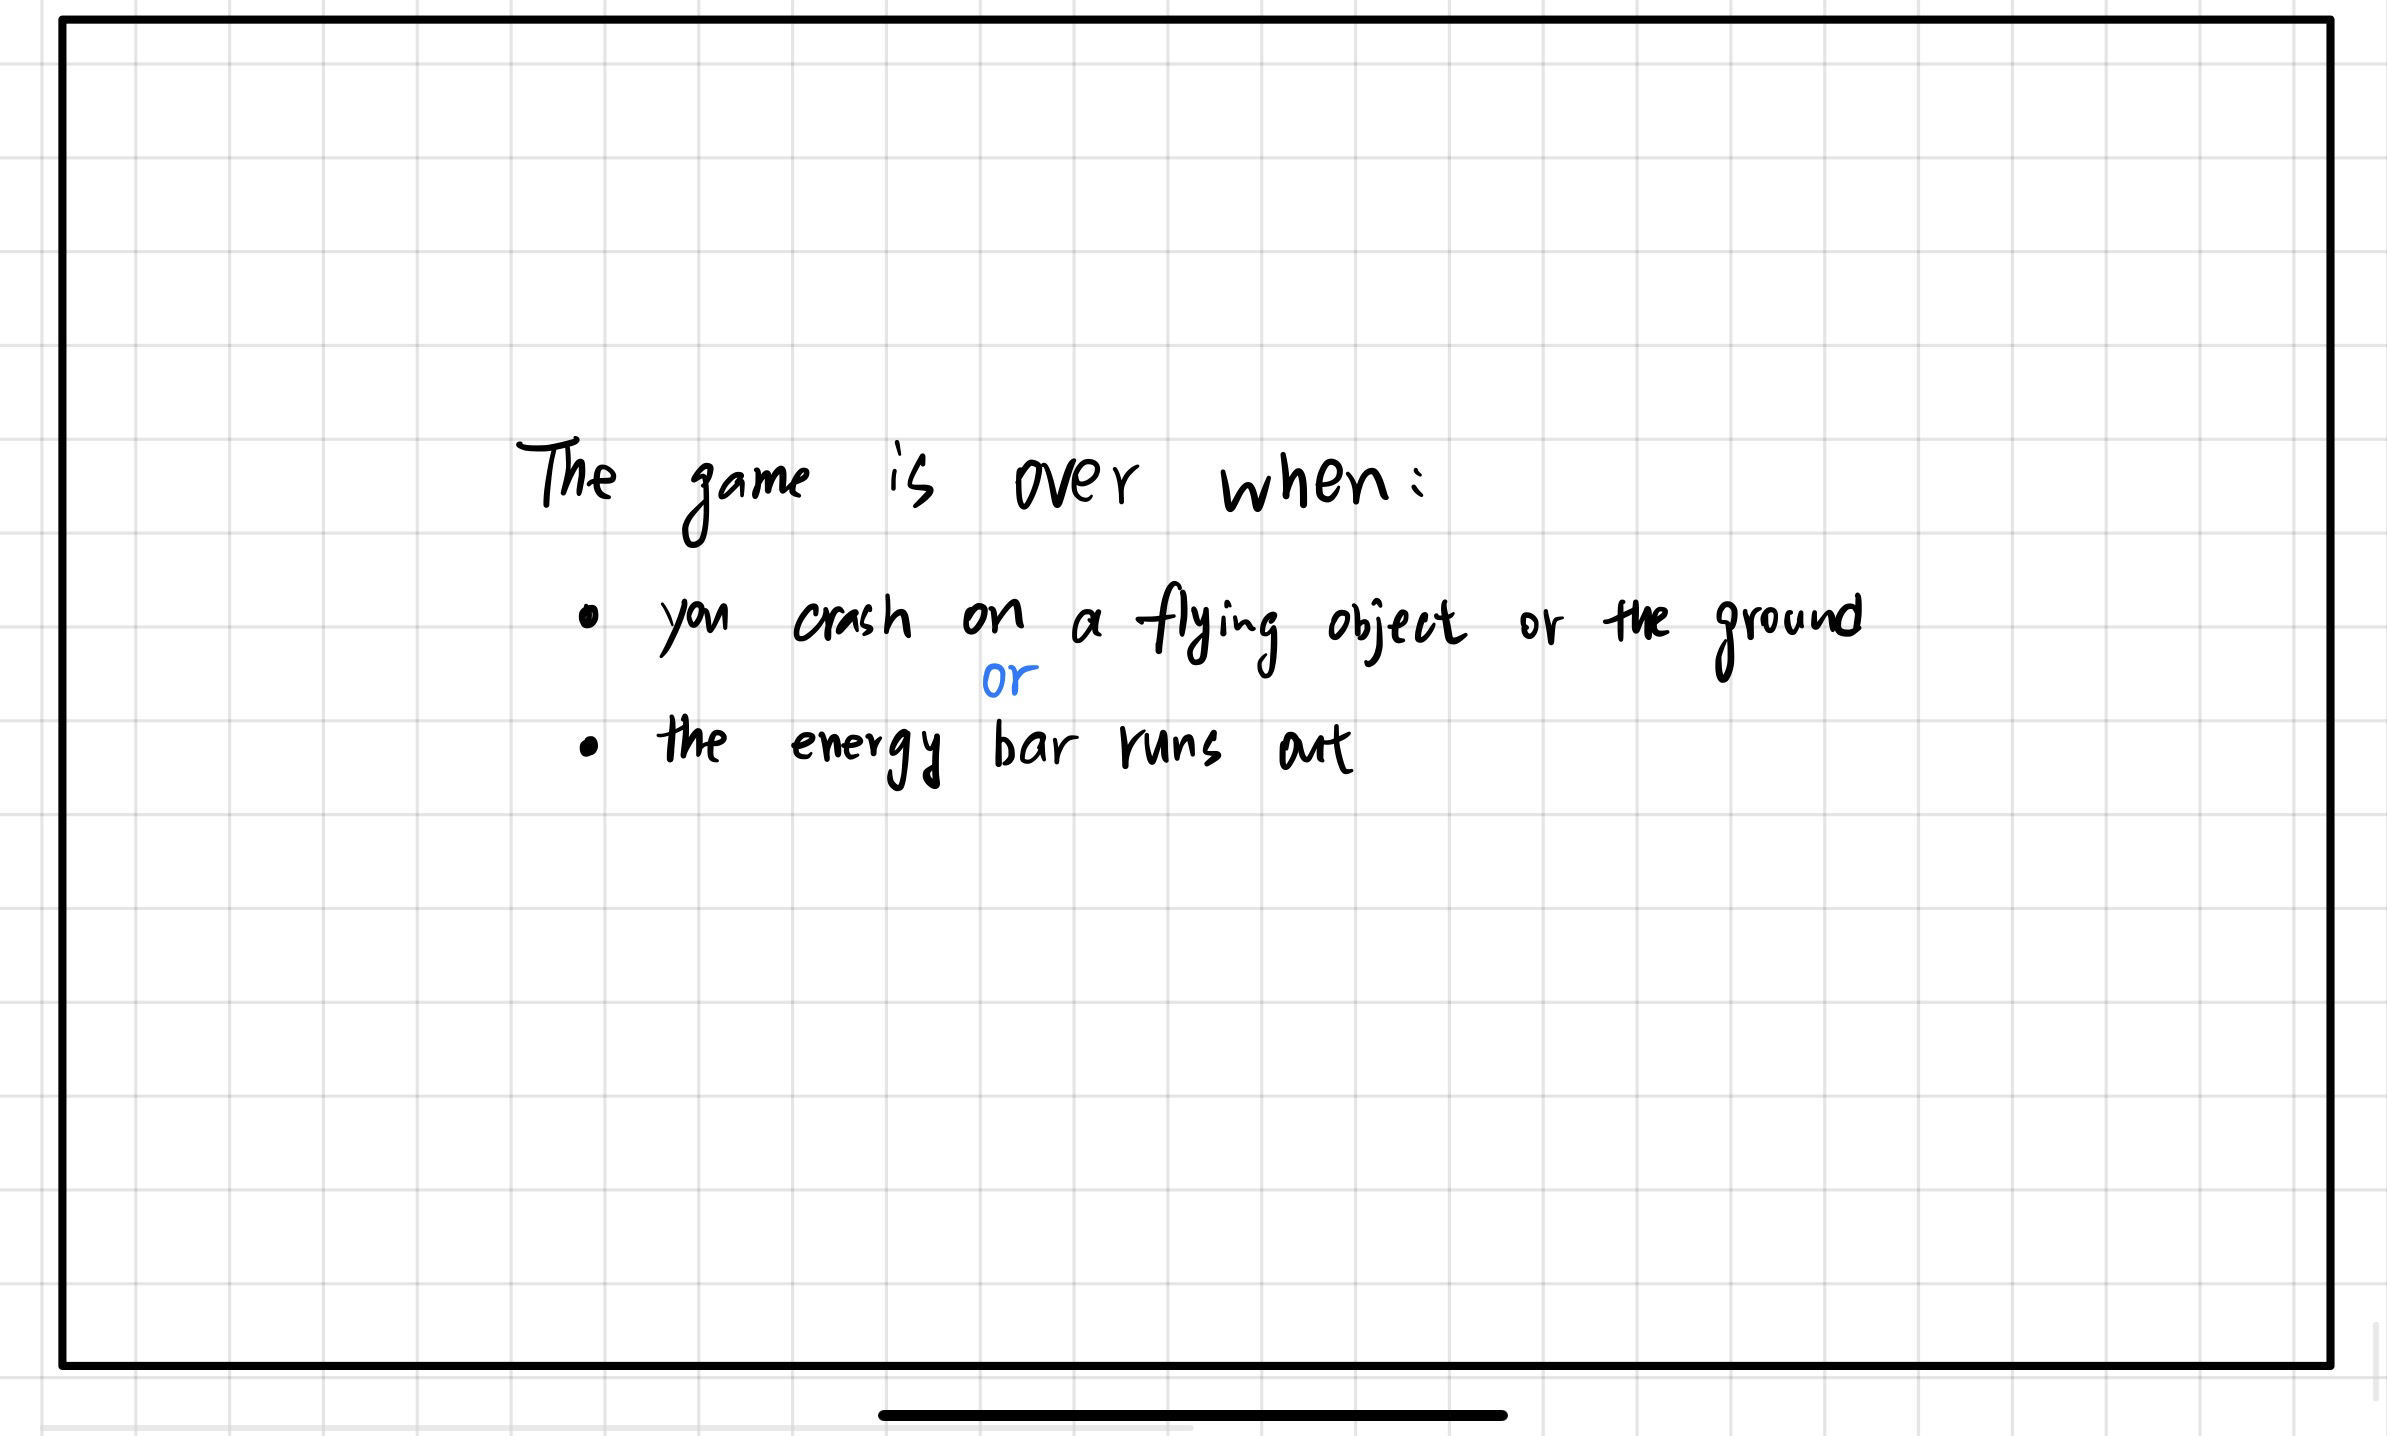 The game is over when:
• you crash on a flying object or the ground
or
• the energy bar runs out